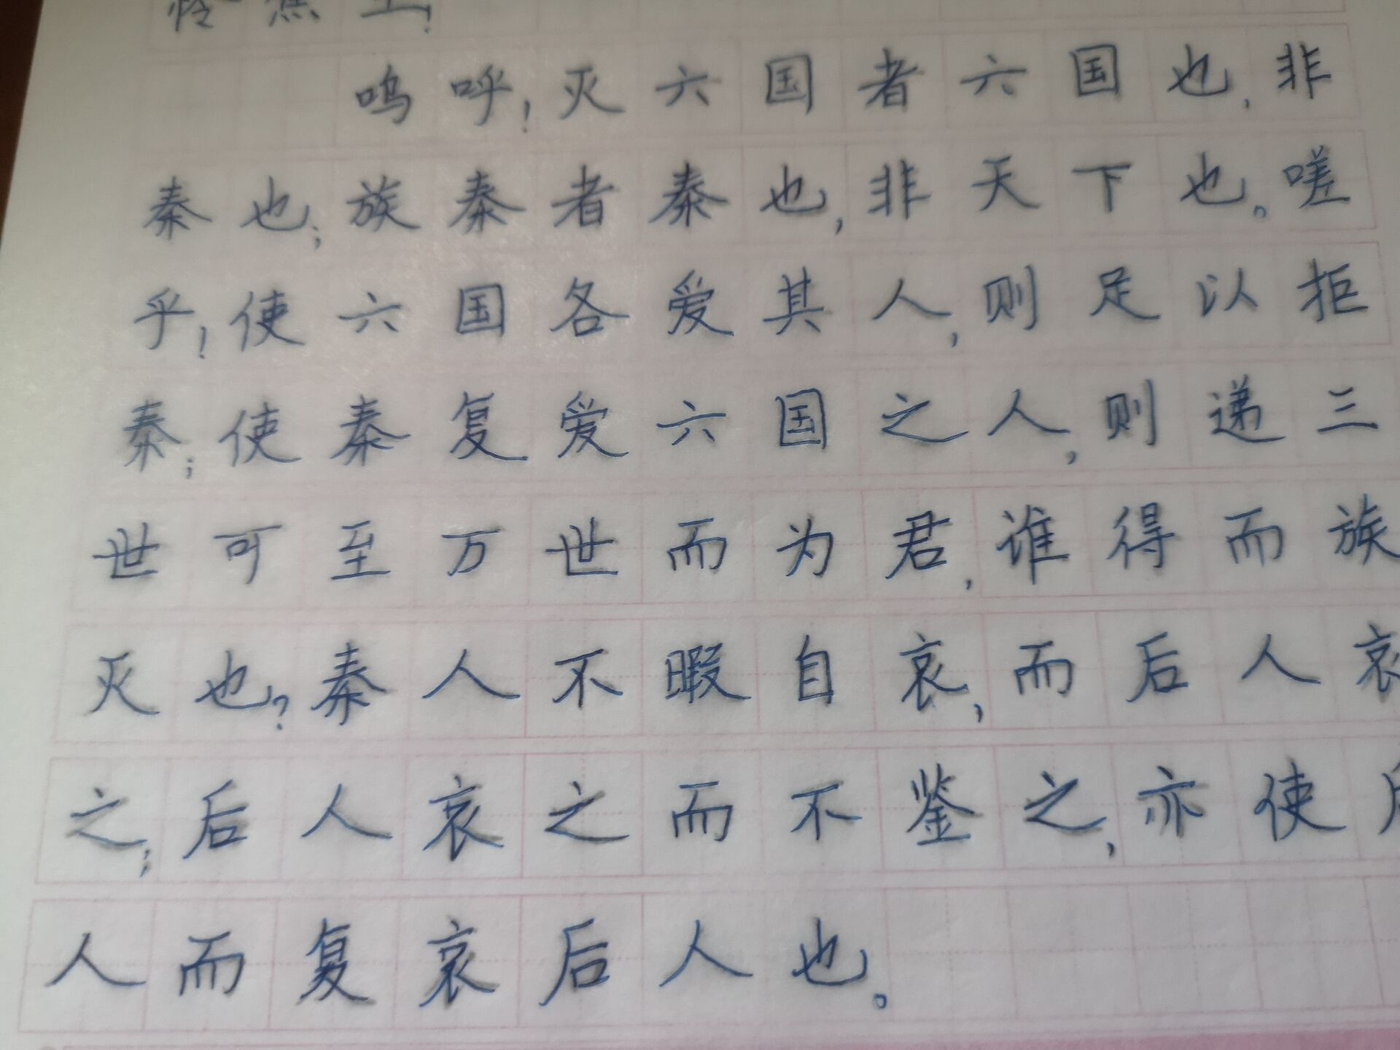 怜焦土!
呜呼!灭六国者六国也,非
秦也;族秦者秦也,非天下也。嗟
乎!使六国各爱其人,则足以拒
秦;使秦复爱六国之人,则递三
世可至万世而为君,谁得而族
灭也?秦人不暇自哀,而后人哀
之;后人哀之而不鉴之,亦使后
人而复哀后人也。